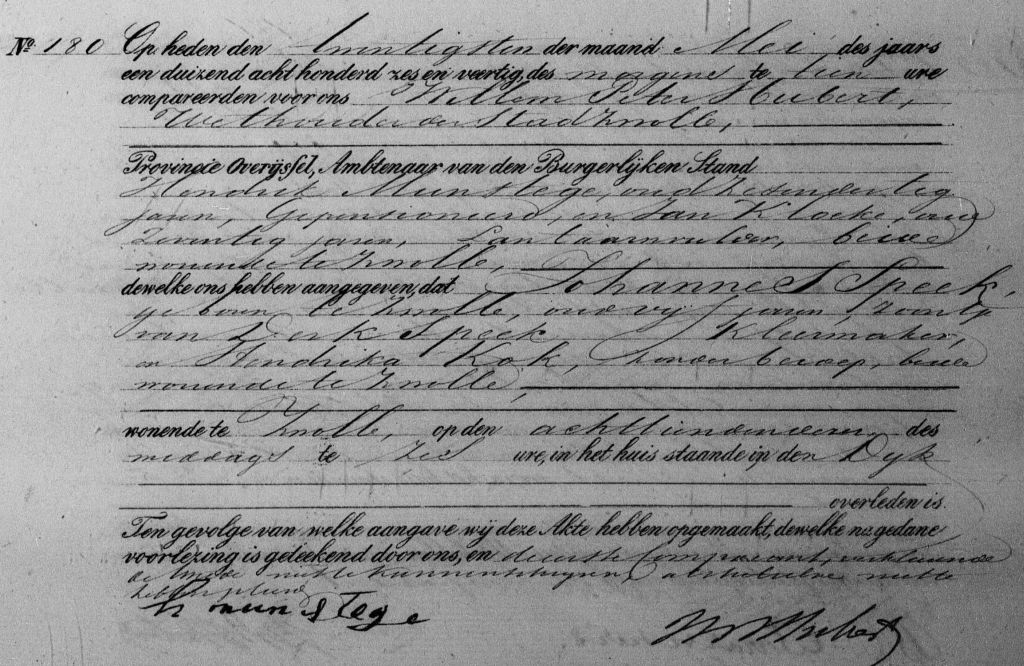 No. 180 Op heden den twintigsten der maand Mei, des jaars
een duizend acht honderd zes en veertig, des morgens te tien ure
compareerden voor ons Willem Peter Hubert,
Wethouder der Stad Zwolle,
Provincie Overijssel, Ambtenaar van den Burgerlijken Stand
Hendrik Munstege, oud zesendertig
jaren, Gepensioneerd, en Jan Klocke, oud
zeventig jaren, Lantaarnvuller, beide
wonende te Zwolle,
dewelke ons hebben aangegeven, dat Johannes Speek,
geboren te Zwolle, oud vijf jaren Zoontje
van Derk Speek Kleermaker,
en Hendrika Kok, zonder beroep, beide
wonende te Zwolle,
wonende te Zwolle, op den achttiendendezer des
middags te zes ure, in het huis staande op den Dyk
overleden is.
Ten gevolge van welke aangave wij deze Akte hebben opgemaakt, dewelke na gedane
voorlezing is geteekend door ons, en de eerste Comparant, verklarende
de tweede niet te kunnen schryven als hebbende nutte
H Munstege
W P Hubert